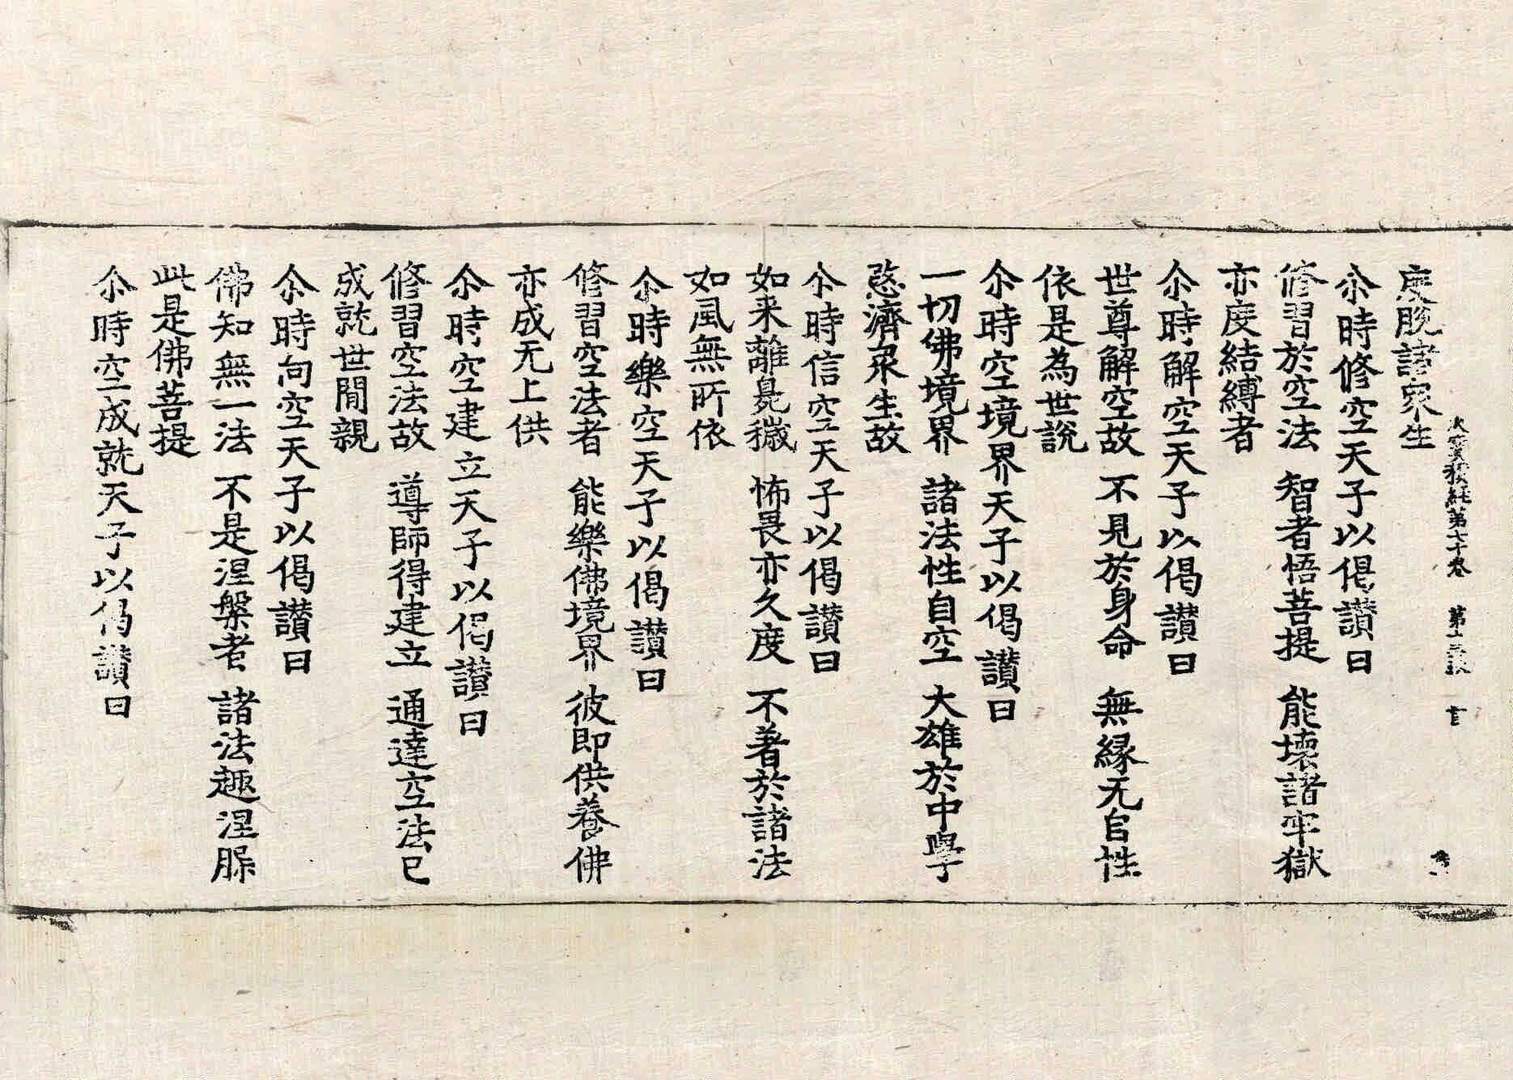 第七十卷
度脫諸衆生
尒時修空天子以偈讃曰
修習於空法 智者悟菩提 能壞諸牢獄
亦度結縛者
尒時解空天子以偈讃曰
世尊解空故 不見於身命 無縁无自性
依是為世說
尒時空境界天子以偈讃曰
一切佛境界 諸法性自空 大雄於中學
愍濟衆生故
尒時信空天子以偈讃曰
如来離臭穢 怖畏亦久度 不著於諸法
如風無所依
尒時樂空天子以偈讃曰
修習空法者 能樂佛境界 彼即供養佛
亦成无上供
尒時空建立天子以偈讃曰
修習空法故 導師得建立 通達空法已
成就世間親
尒時向空天子以偈讃曰
佛知無一法 不是涅槃者 諸法趣涅槃
此是佛菩提
尒時空成就天子以偈讃曰